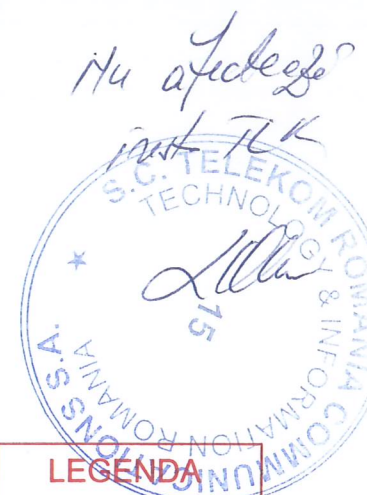 Nu afectează
inst TLK
S.C. TELEKOM ROMANIA COMMUNICATIONS S.A.
TECHNOLOGY & INFORMATION ROMANIA
15
LEGENDA